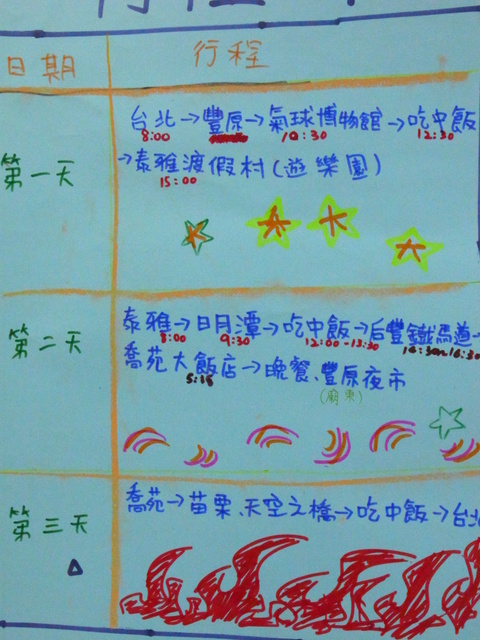 日期
行程
第一天
台北→豐原→氣球博物館→吃中飯
8:00 10:30 12:30
→泰雅渡假村(遊樂園)
15:00
第二天
泰雅→日月潭→吃中飯→后豐鐵馬道→
8:00 9:30 12:00-13:30
喬苑大飯店→晚餐、豐原夜市
(廟東)
第三天
喬苑→苗栗、天空之橋→吃中飯→台北